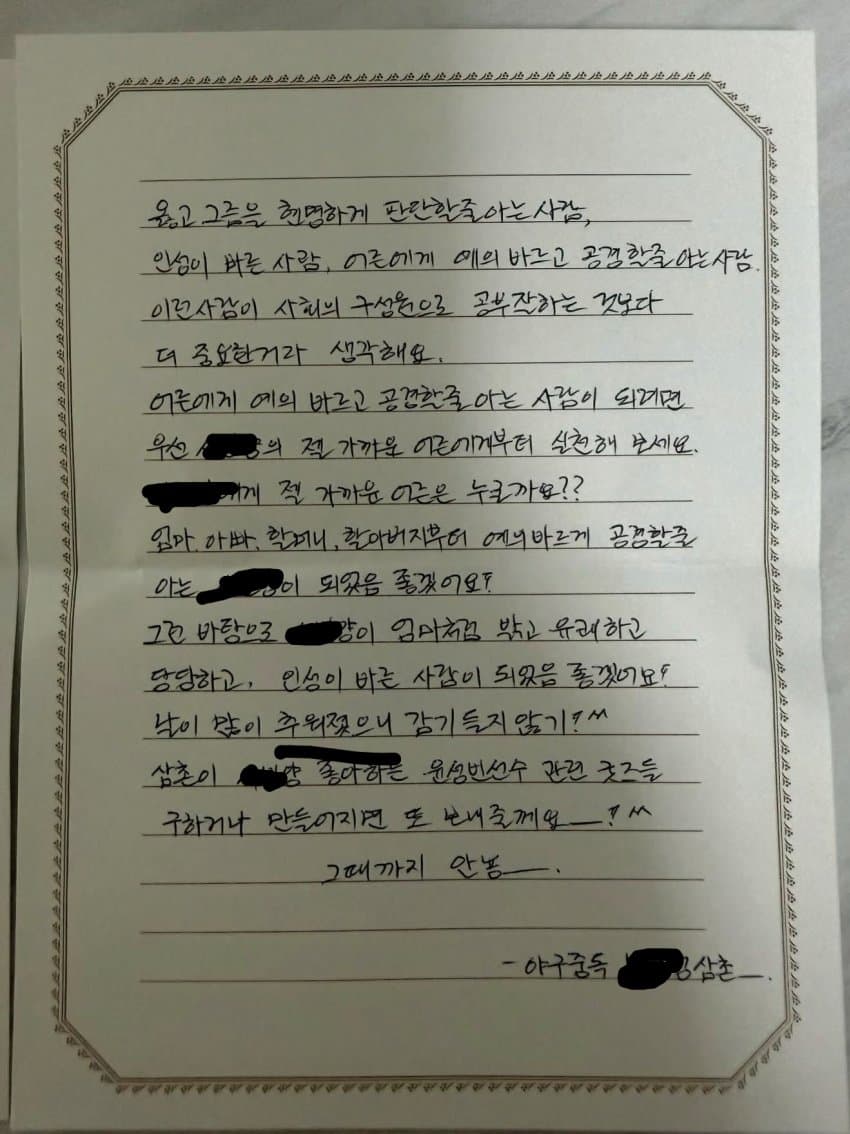 옳고 그름을 현명하게 판단할줄아는 사람,
인성이 바른 사람, 어른에게 예의 바르고 공경할줄아는사람.
이런사람이 사회의 구성원으로 공부잘하는 것보다
더 중요한거라 생각해요.
어른에게 예의 바르고 공경할줄 아는 사람이 되려면
우선 의 젤 가까운 어른에게부터 실천해 보세요.
에게 젤 가까운 어른은 누굴까요??
엄마, 아빠, 할머니, 할아버지부터 예의바르게 공경할줄
아는 이 되었음 좋겠어요!
그런 바탕으로 양이 엄마처럼 밝고 유쾌하고
당당하고, 인성이 바른 사람이 되었음 좋겠어요!
날이 많이 추워졌으니 감기들지않기!^^
삼촌이 양 좋아하는 윤성빈선수 관련 굿즈들
구하거나 만들어지면 또 보내줄께요__!^^
그때까지 안뇽__.
- 야구중독 삼촌__.